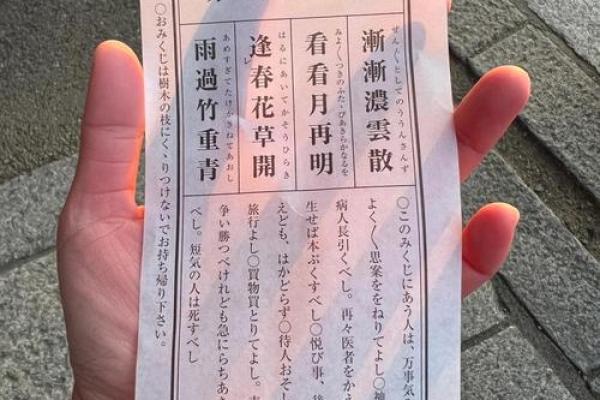 漸漸濃雲散
ぜん〳〵としてのううんさんず
看看月再明
みよ〳〵つきのふたゝびあきらかなるを
逢レ春花草開
はるにあいてかそうひらき
雨過竹重青
あめすぎてたけかさねてあおし
〇このみくじにあう人は、万事気
よく〳〵思案をねりてよし〇
病人長引くべし。再々医者をかえ
生せば本ぷくすべし〇悦び事、
えども、はかどらず〇待人おそし
旅行よし〇買物買とりてよし。
争い勝つべけれども急にらちあ
べし。短気の人は死すべし
〇おみくじは樹木の枝にくゝりつけないでお持ち帰り下さい。